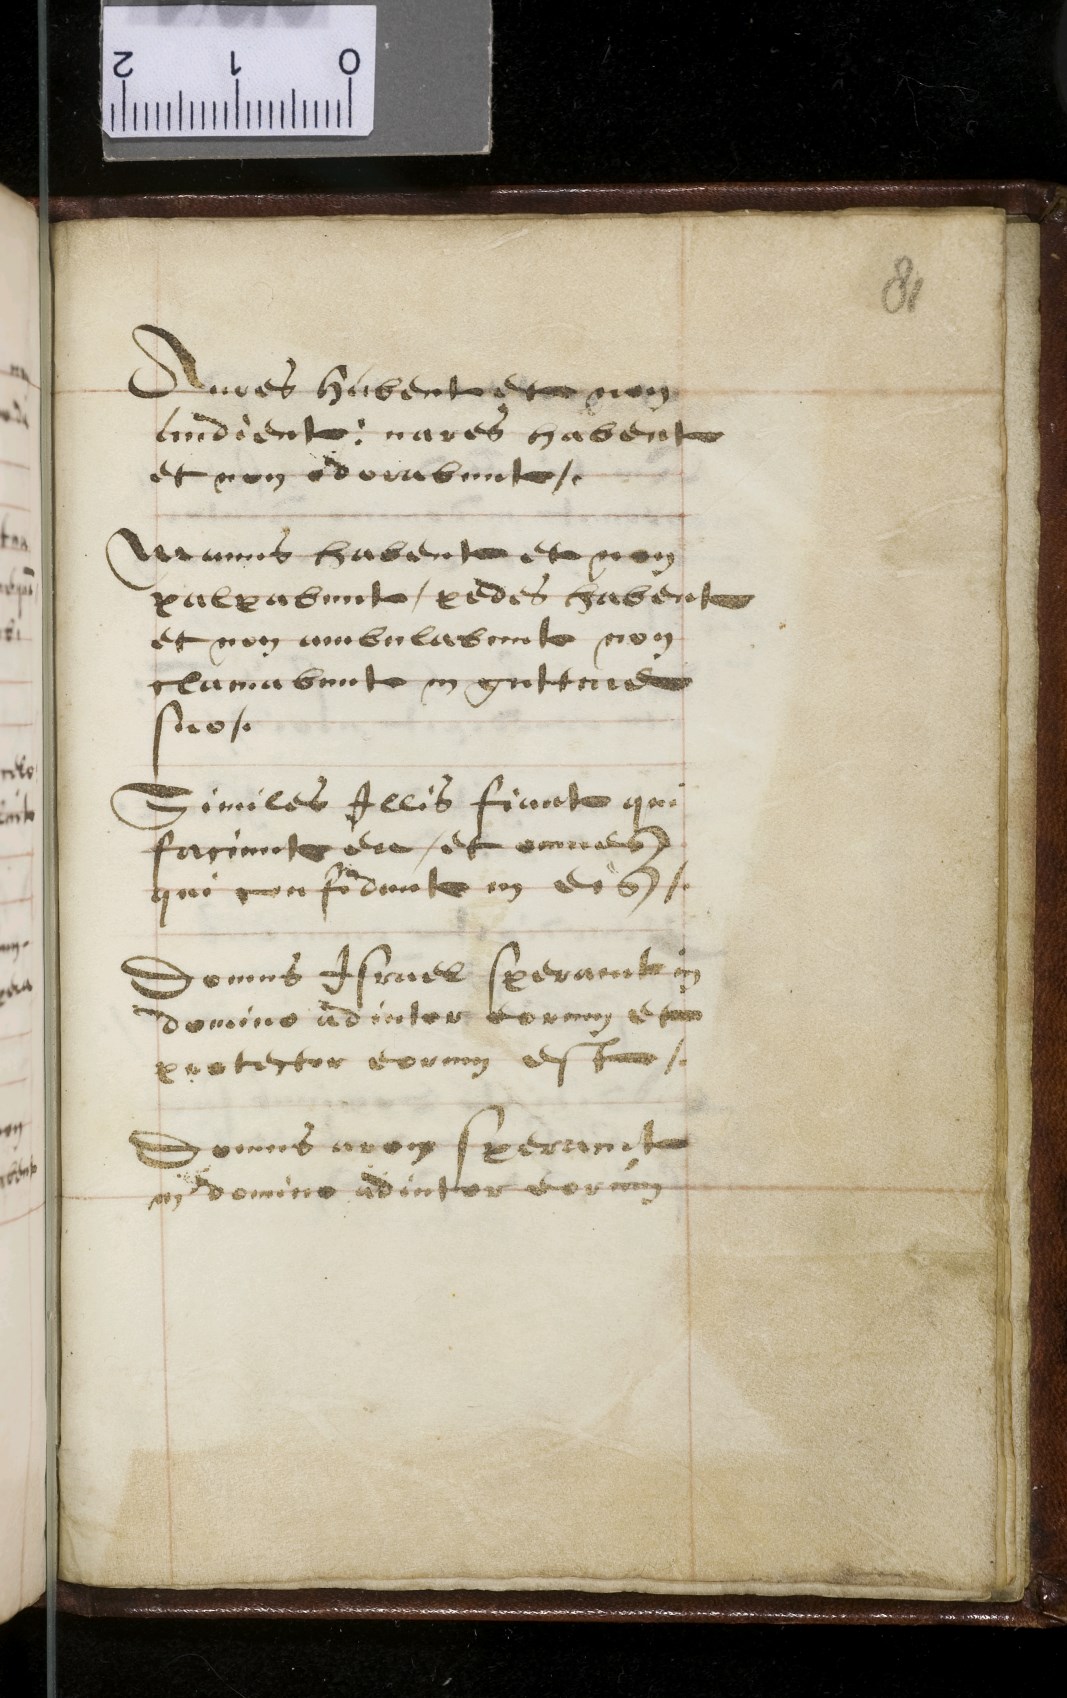 81
Aures habent et non
audient: nares habent
et non odorabunt /.
Manus habent et non
palpabunt / pedes habent
et non ambulabunt non
clamabunt in gutture
suo /.
Similes Illis fiant qui
faciunt ea / et omnes
qui confidunt in eis /.
Domus Israel speravit in
domino adiutor eorum et
protector eorum est /.
Domus aron speravit
in domino adiutor eorum
2 1 0